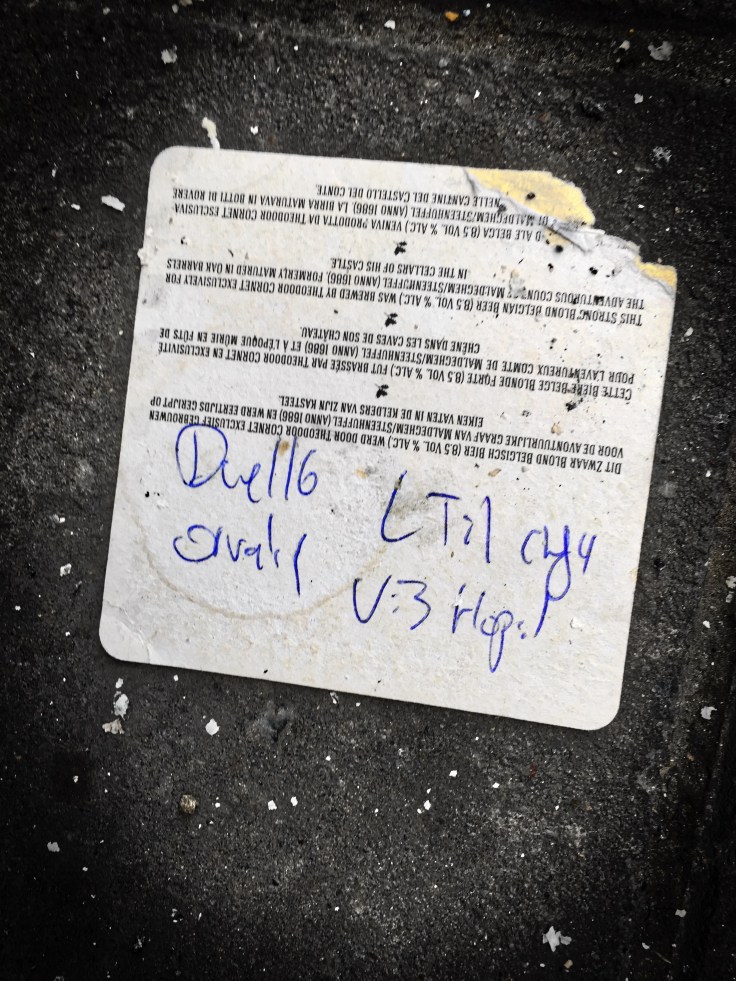 DIT ZWAAR BLOND BELGISCH BIER (8.5 VOL. % ALC.) WERD DOOR THEODOOR CORNET EXCLUSIEF GEBROUWEN
VOOR DE AVONTUURLIJKE GRAAF VAN MALDEGHEM/STEENHUFFEL (ANNO 1686) EN WERD EERTIJDS GERIJPT OP
EIKEN VATEN IN DE KELDERS VAN ZIJN KASTEEL.
CETTE BIÈRE BELGE BLONDE FORTE (8.5 VOL. % ALC.) FUT BRASSÉE PAR THEODOOR CORNET EN EXCLUSIVITÉ
POUR L'AVENTUREUX COMTE DE MALDEGHEM/STEENHUFFEL (ANNO 1686) ET À L'ÉPOQUE MÛRIE EN FÛTS DE
CHÊNE DANS LES CAVES DE SON CHÂTEAU.
THIS STRONG BLOND BELGIAN BEER (8.5 VOL. % ALC.) WAS BREWED BY THEODOOR CORNET EXCLUSIVELY FOR
THE ADVENTUROUS COUNT OF MALDEGHEM/STEENHUFFEL (ANNO 1686), FORMERLY MATURED IN OAK BARRELS
IN THE CELLARS OF HIS CASTLE.
D ALE BELGA (8.5 VOL. % ALC.) VENIVA PRODOTTA DA THEODOOR CORNET ESCLUSIVA
DI MALDEGHEM/STEENHUFFEL (ANNO 1686). LA BIRRA MATURAVA IN BOTTI DI ROVERE
NELLE CANTINE DEL CASTELLO DEL CONTE.